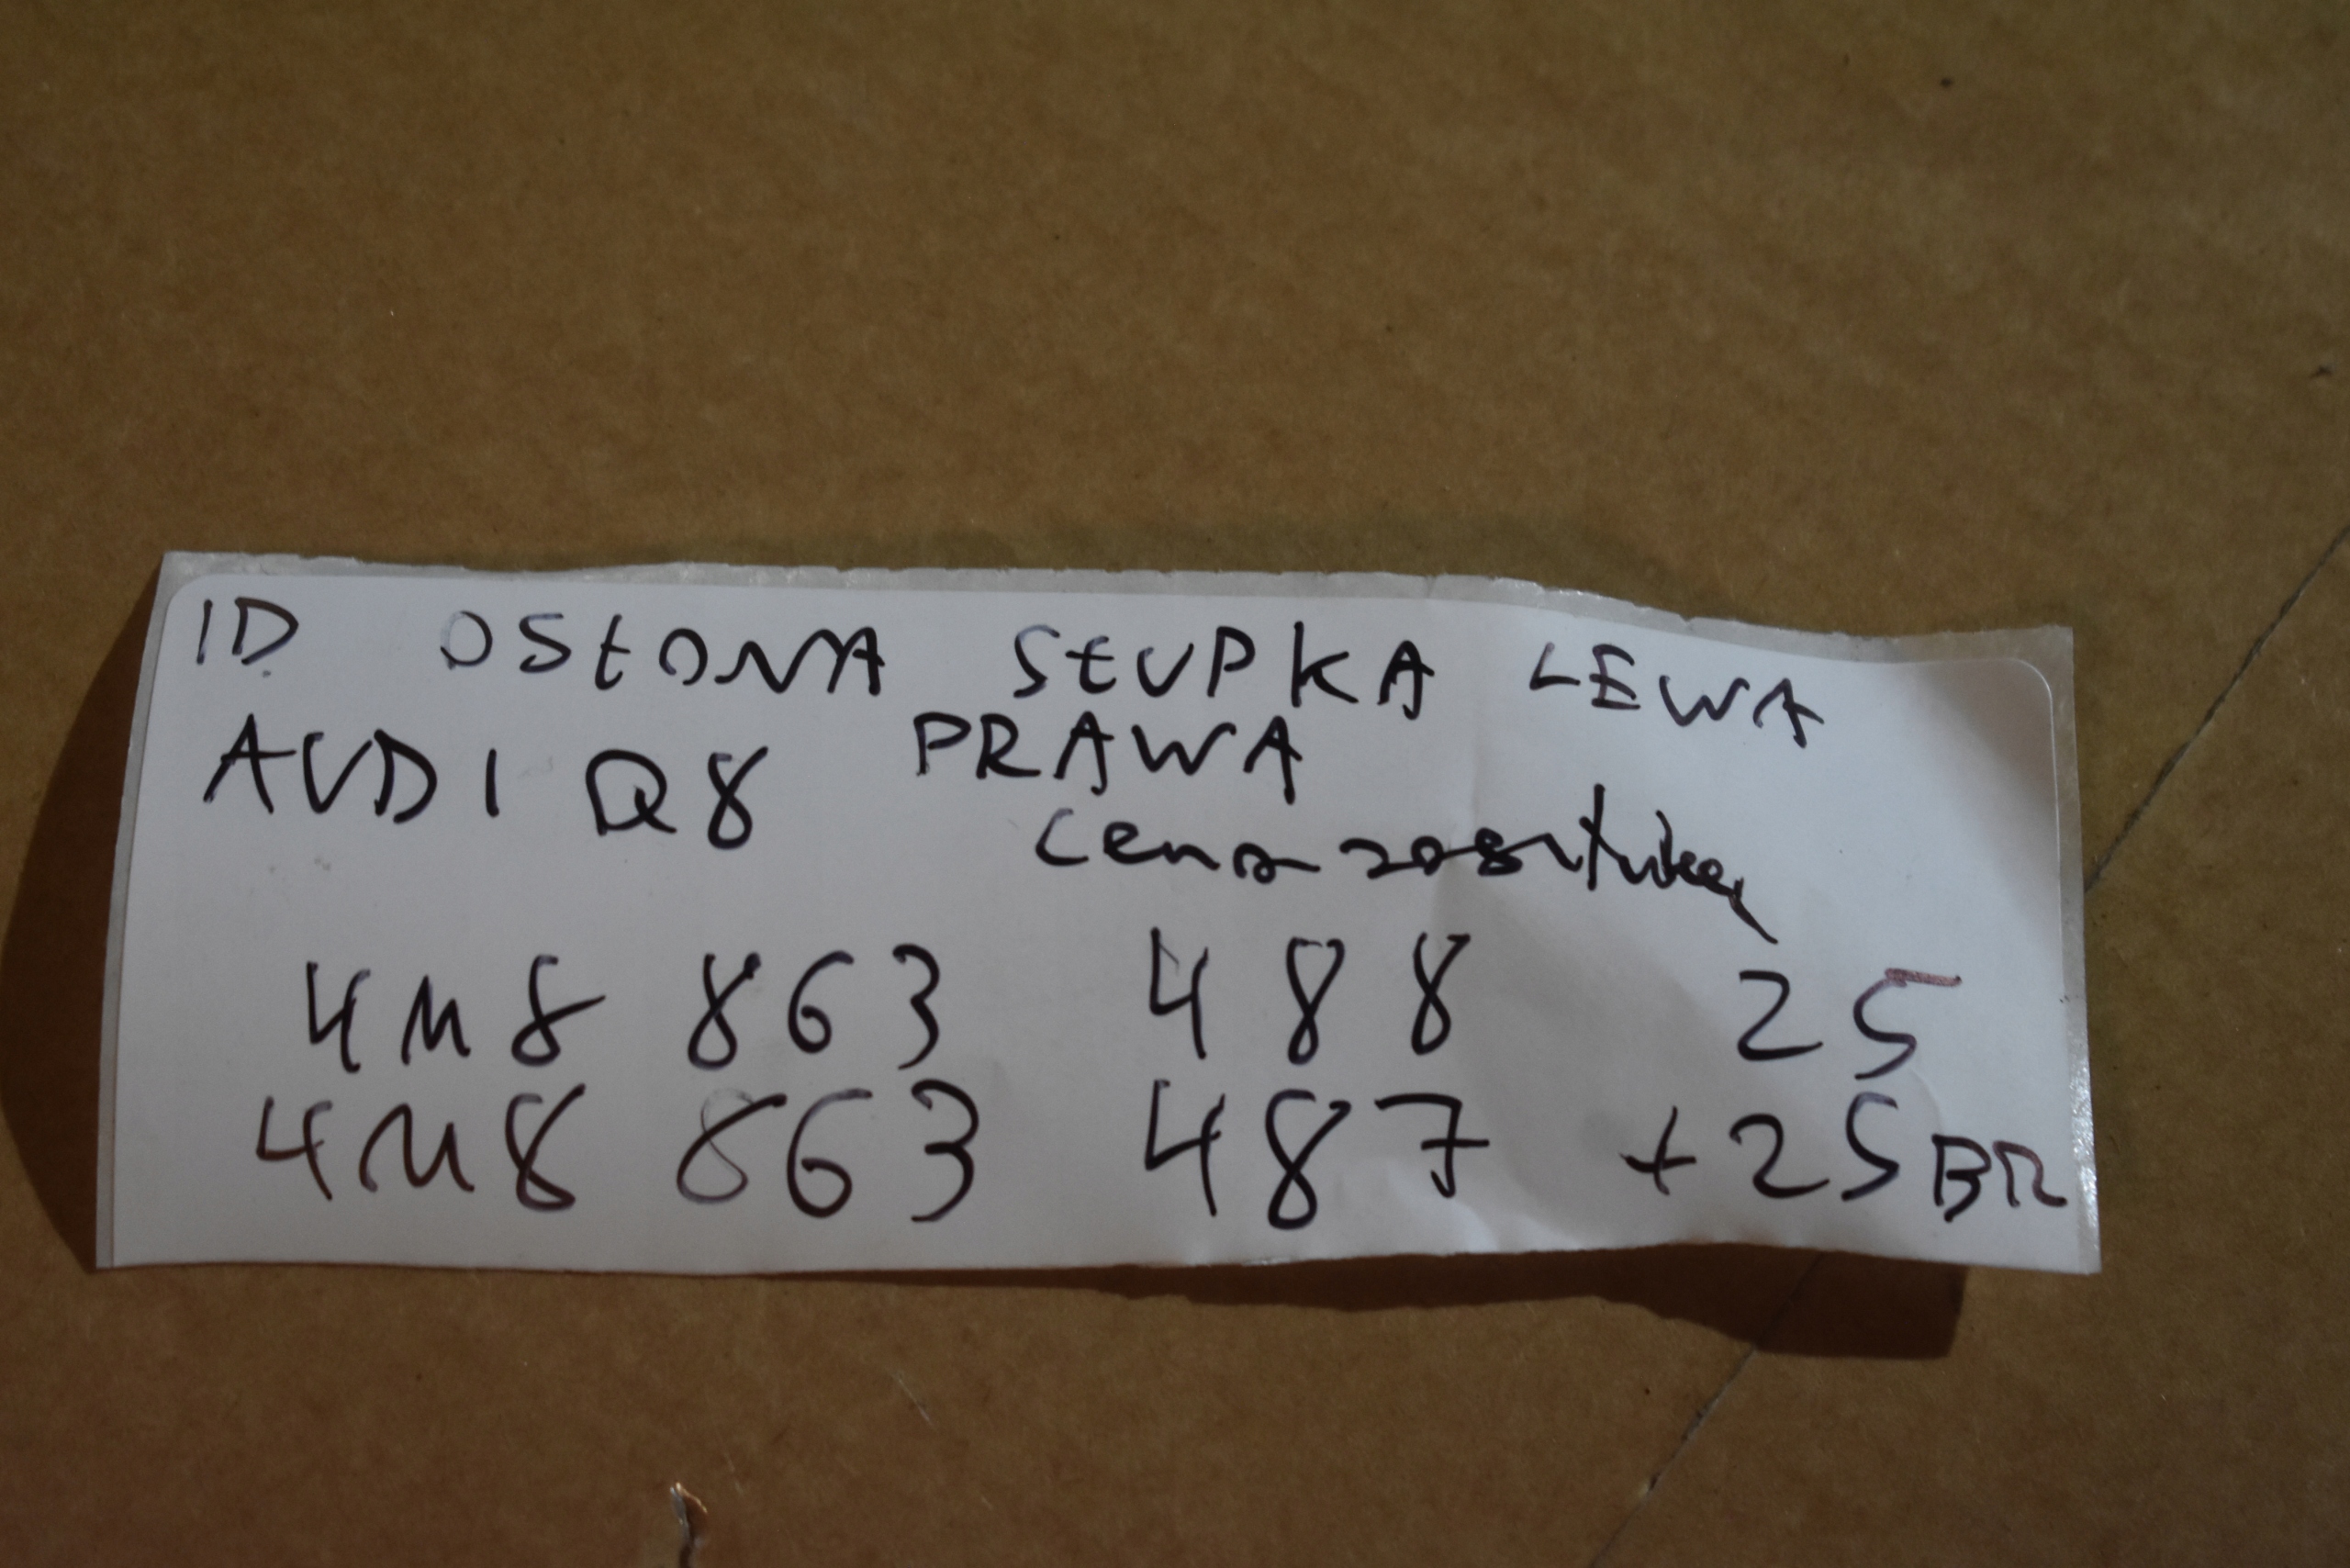 ID OSŁONA SŁUPKA LEWA
AUDI Q8 PRAWA
cena za sztukę
4M8 863 488 25
4M8 863 487 +25BR